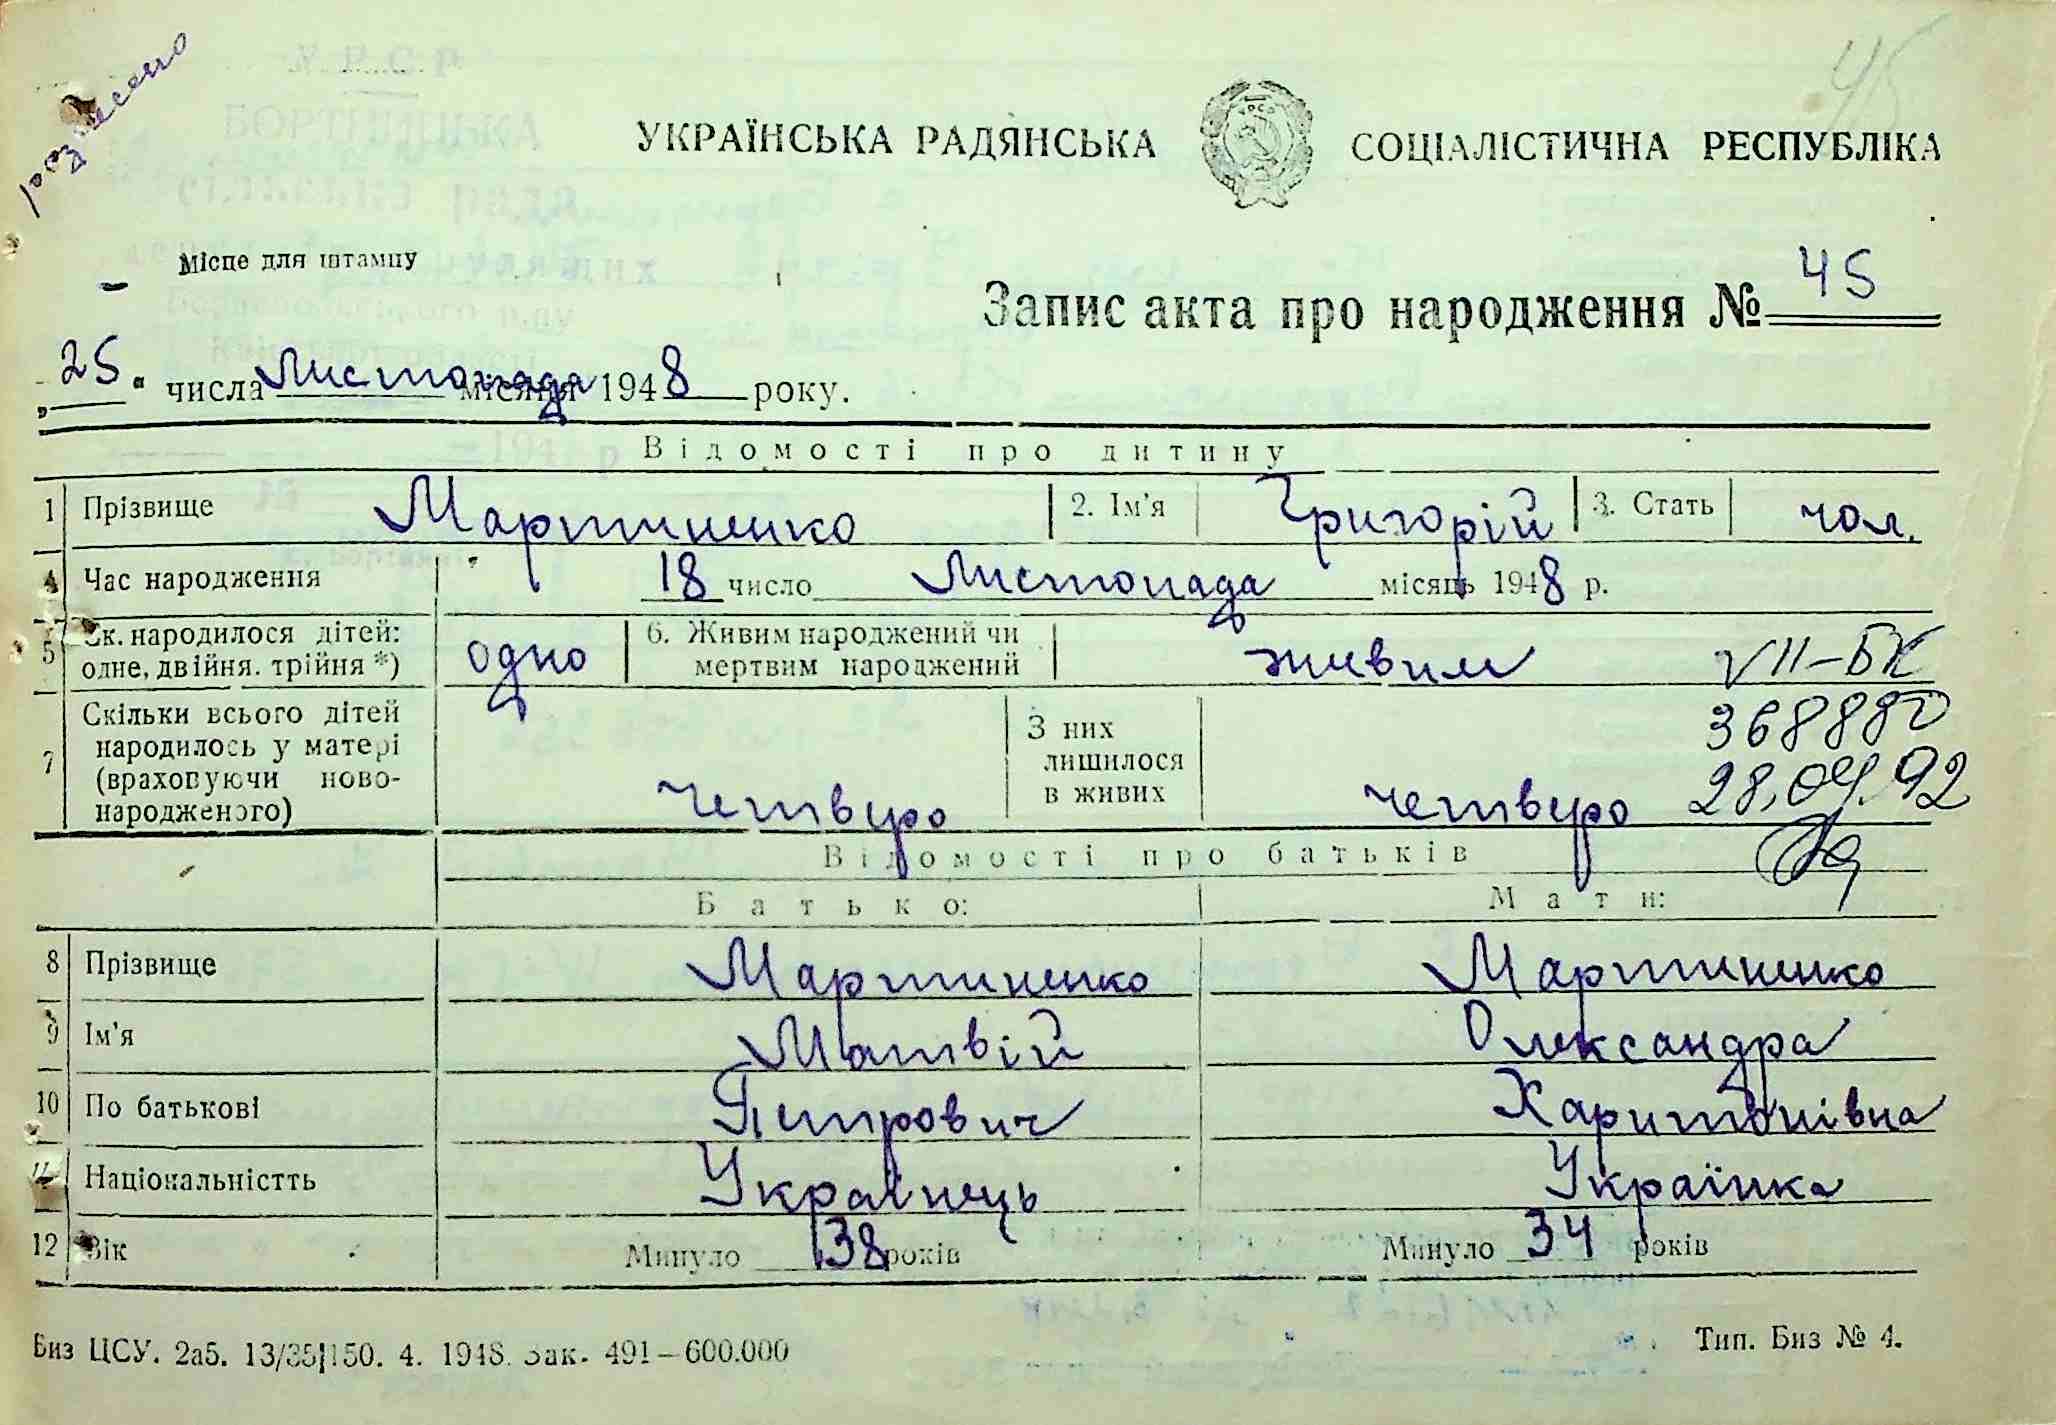 рознесено
45
УКРАЇНСЬКА РАДЯНСЬКА СОЦІАЛІСТИЧНА РЕСПУБЛІКА
Місце для штампу
Запис акта про народження № 45
„25" числа Листопада місяця 1948 року.
Відомості про дитину
1 Прізвище Мартиненко 2. Ім'я Григорій 3. Стать чол.
4 Час народження 18 число Листопада місяць 1948 р.
5 Ск. народилося дітей: одне, двійня. трійня *) одно 6. Живим народжений чи мертвим народжений живим
VII-БК
368880
28.04.92
7 Скільки всього дітей народилось у матері (враховуючи ново-народженого) четверо З них лишилося в живих четверо
Відомості про батьків
Батько: Мати:
8 Прізвище Мартиненко Мартиненко
9 Ім'я Матвій Олександра
10 По батькові Петрович Харитонівна
11 Національністть Українець Українка
12 Вік Минуло 38 років Минуло 34 років
Биз ЦСУ. 2аб. 13/35|150. 4. 1948. Зак. 491—600.000 Тип. Биз № 4.